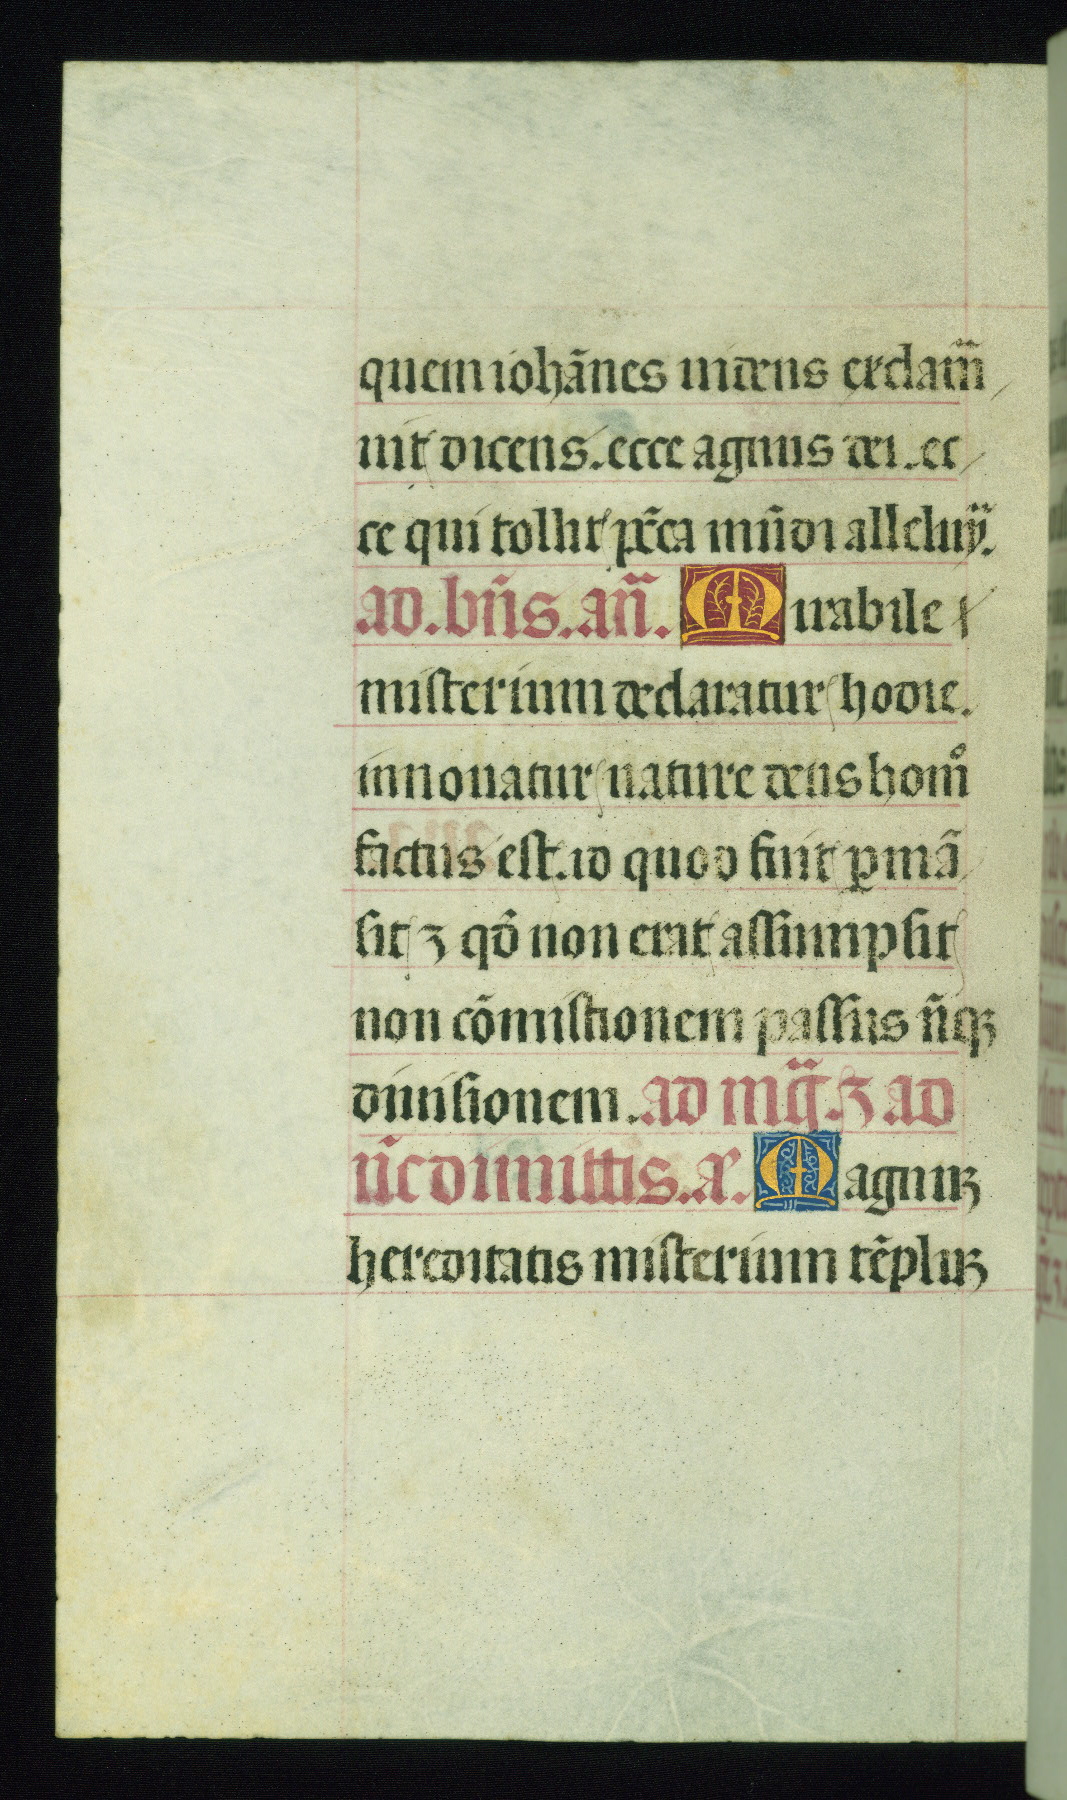 quem iohānes uidens exclam̄
uit dicens. ecce agnus dei. ec
ce qui tollit pc̄ca mūdi alleluȳ.
ad. bn̄s. an̄. Mirabile
misterium declaratur hodie.
innouatur nature deus homͦ
factus est. id quod fuit ꝑmā
sit ⁊ qđ non erat assumpsit
non cōmistionem passus n̄qꝫ
diuisionem. ad mḡ. ⁊ ad
n̄c dimittis. añ. Magnuꝫ
hereditatis misterium tēpluꝫ